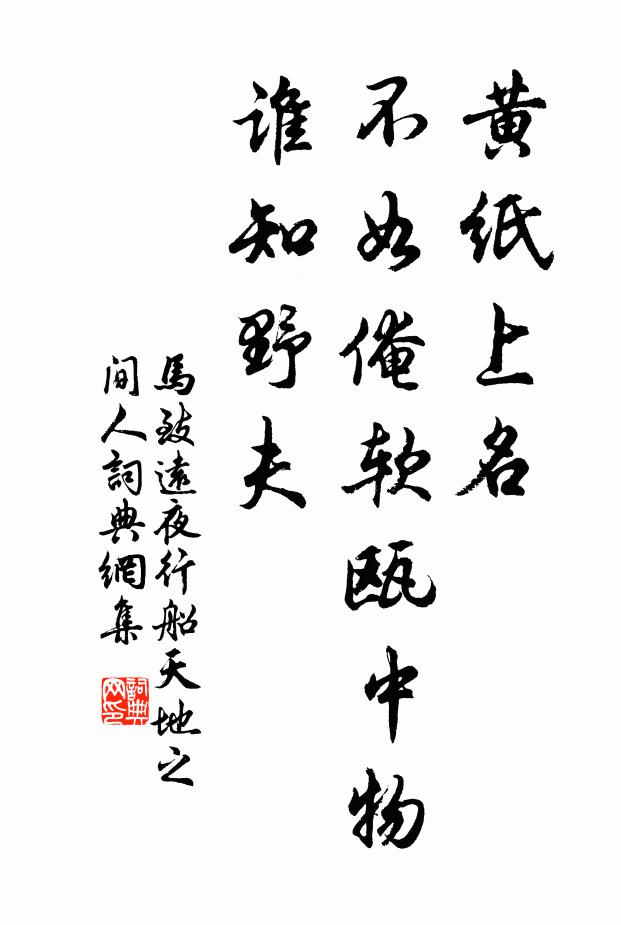 黄纸上名
不如俺软瓯中物
谁知野夫
馬致遠夜行船天地之
间人詞典網集
詞典
网印